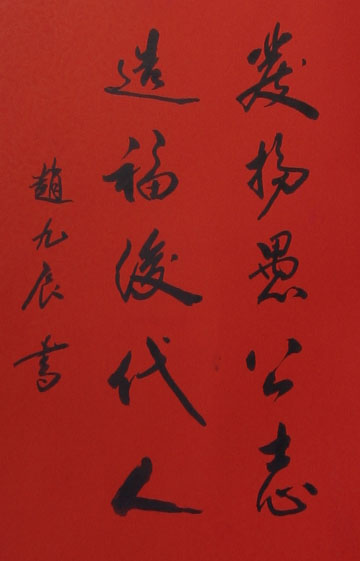 發揚愚公志
造福後代人
趙九辰書